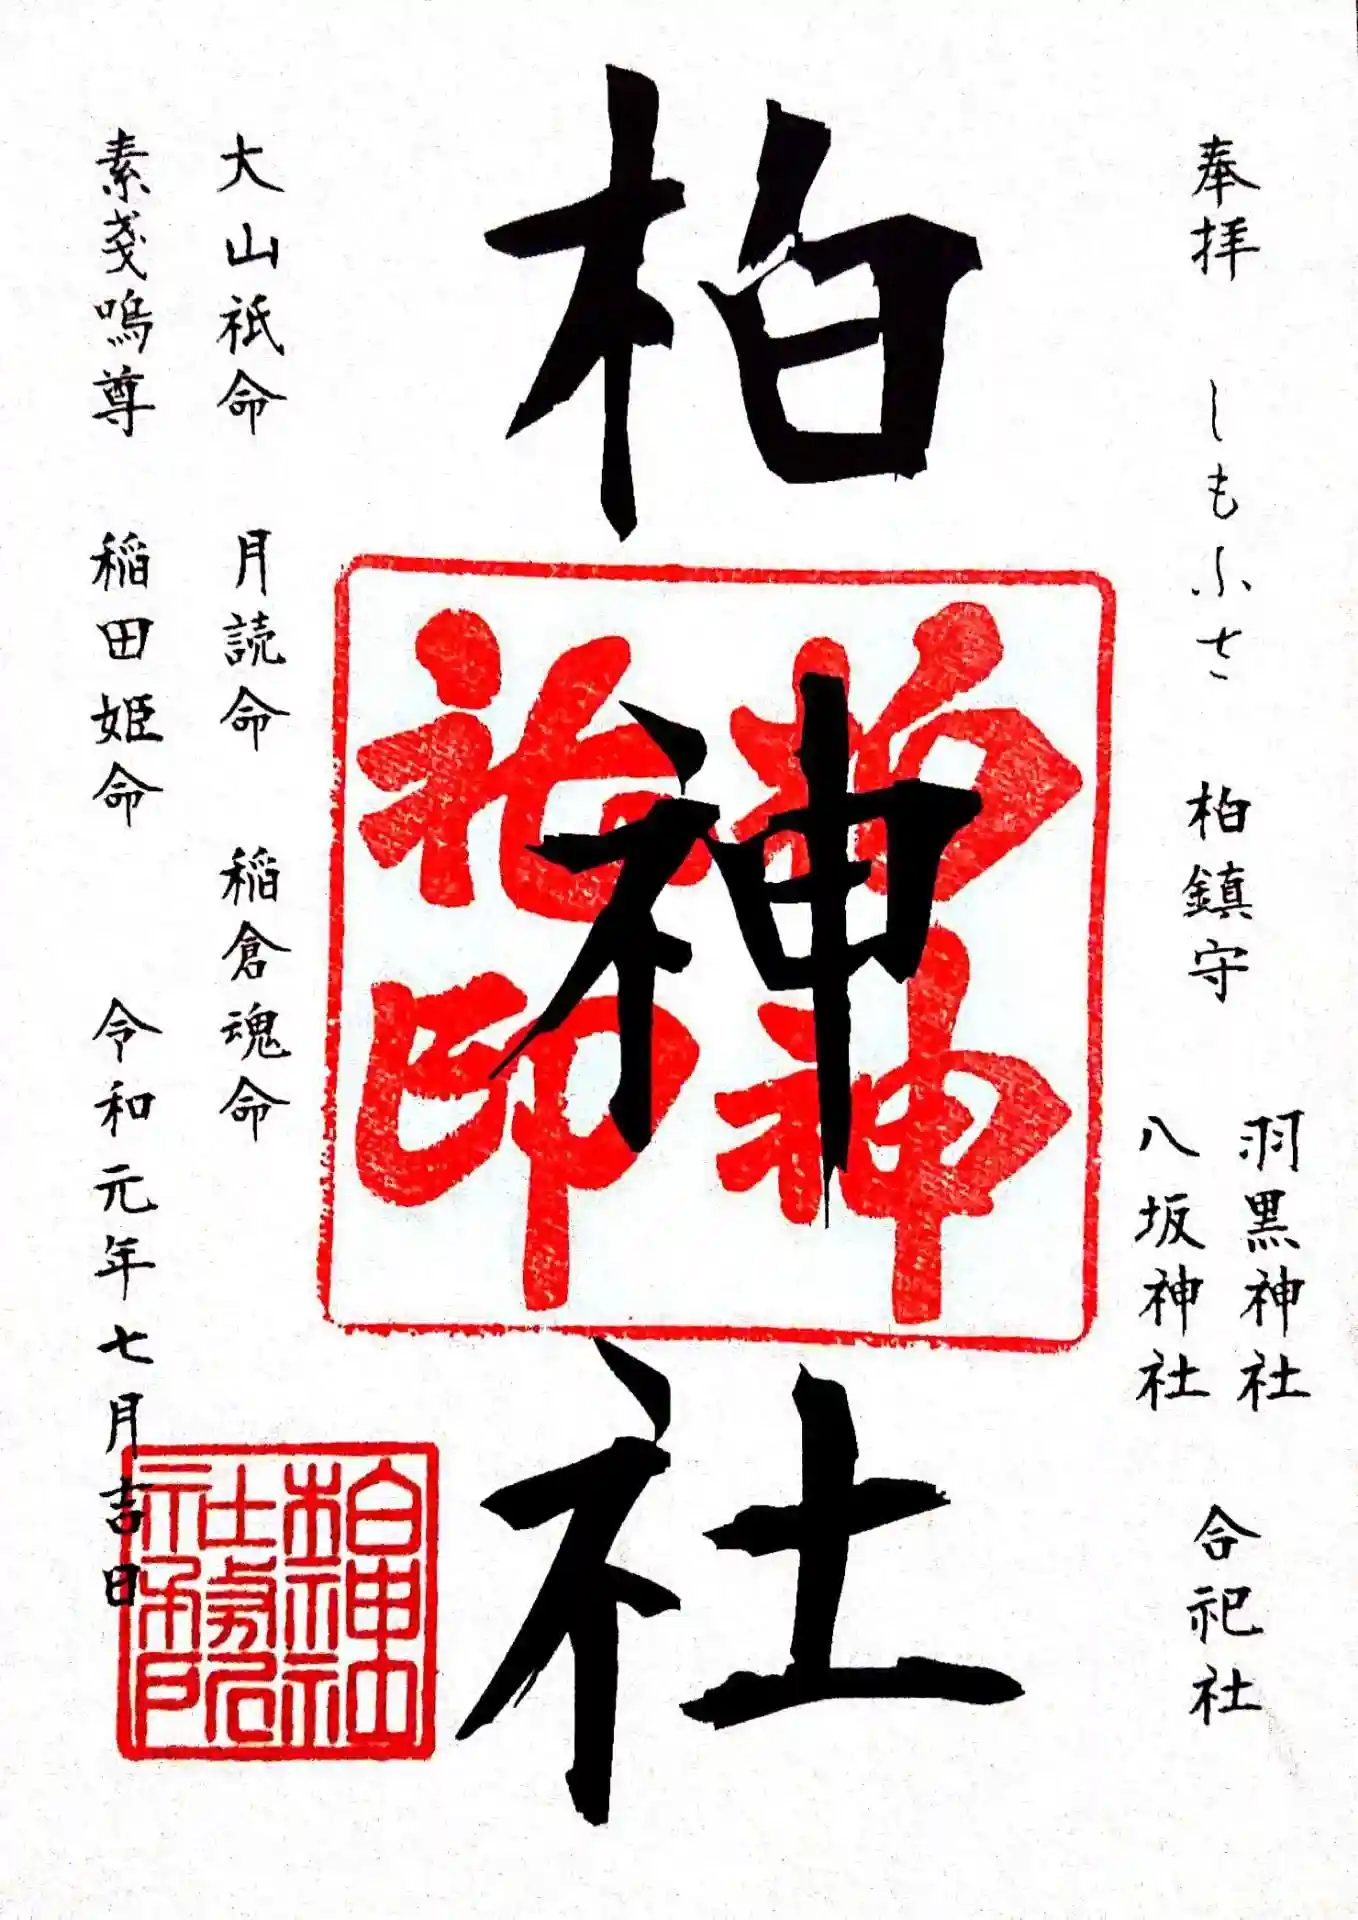 奉拝 しもふさ 柏鎮守
羽黒神社
八坂神社
合祀社
柏神社
柏神
社印
大山祇命 月読命 稲倉魂命
素戔嗚尊 稲田姫命 令和元年七月吉日
柏神社
社務所